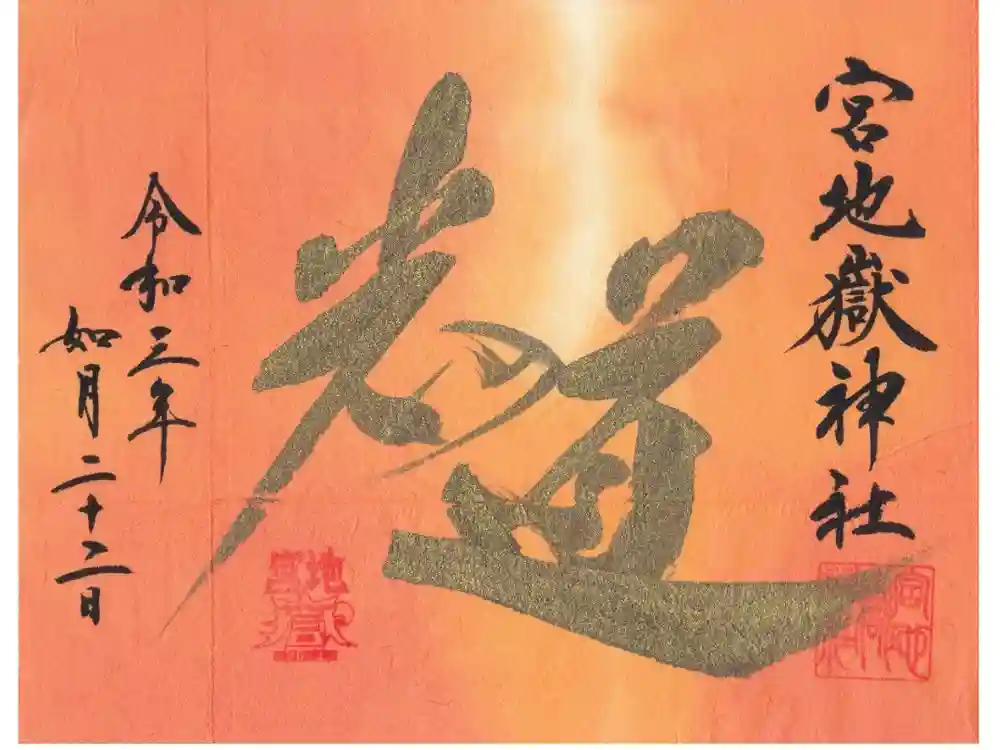 宮地嶽神社
光の道
令和三年
如月二十二日
宮地嶽